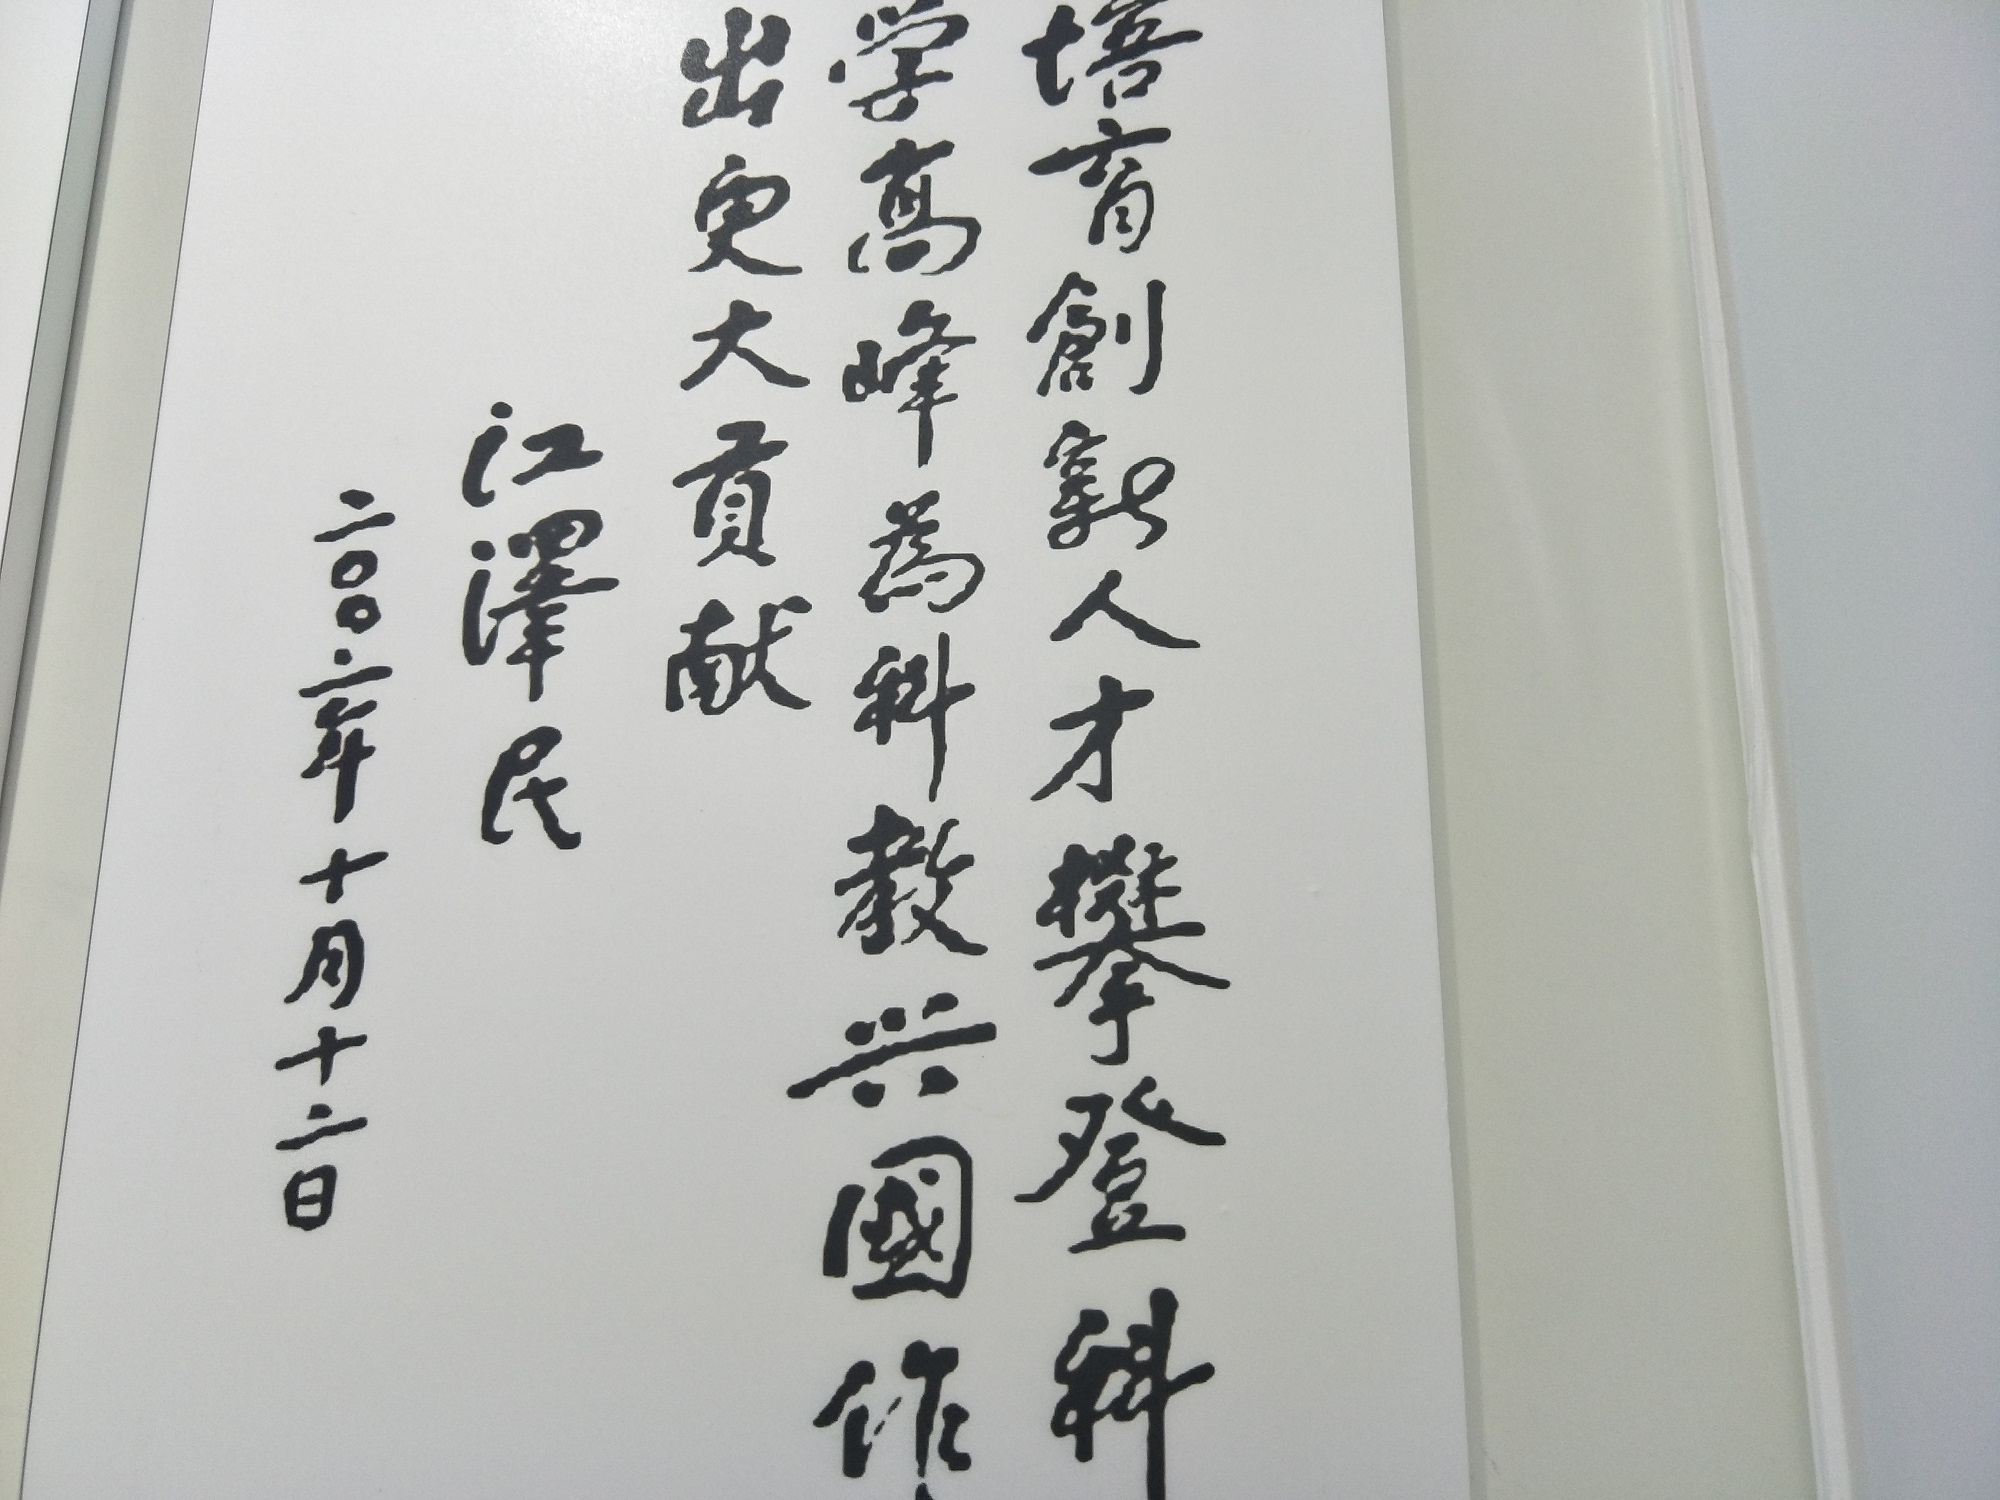 培育創新人才攀登科
学高峰為科教兴國作
出更大貢献
江澤民
二〇〇二年十月十二日